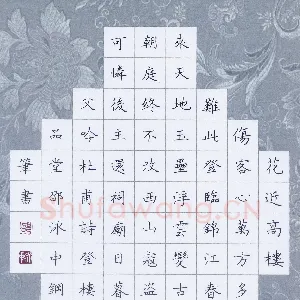 花近高樓
傷客心萬方多
難此登臨錦江春
來天地玉壘浮雲變古
朝庭終不改西山寇盜
可憐後主還祠廟日暮
父吟杜甫詩登樓
品堂邵冰中鋼
筆書
Shufawang.CN